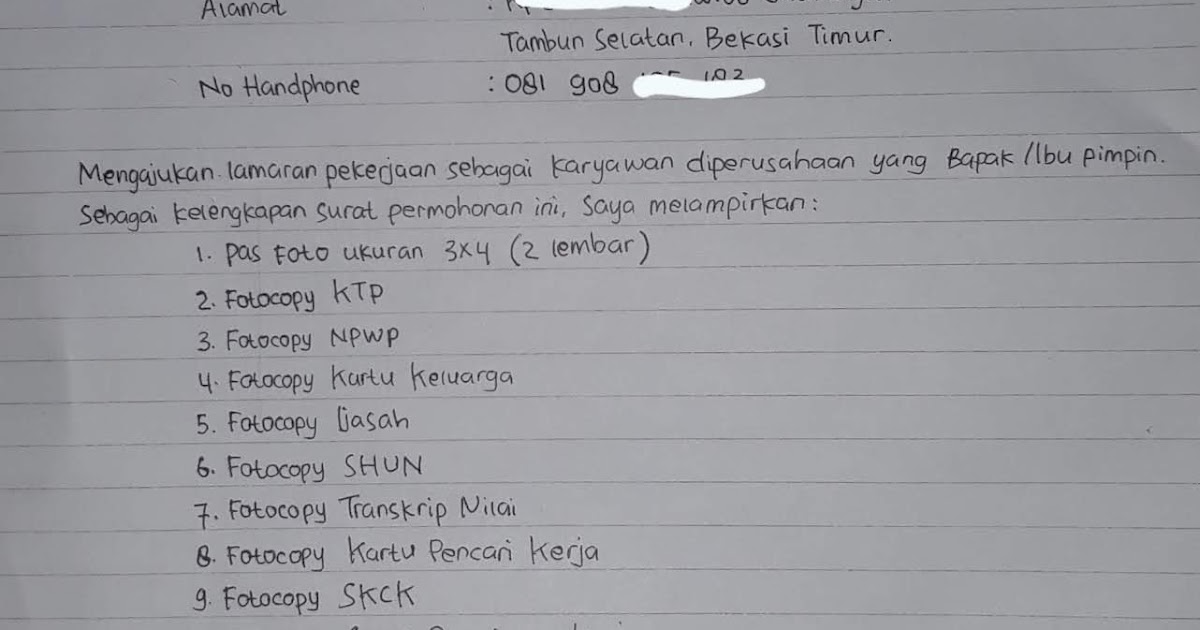 Alamat :
Tambun Selatan, Bekasi Timur.
No Handphone : 081 908
Mengajukan lamaran pekerjaan sebagai karyawan diperusahaan yang Bapak / Ibu pimpin.
Sebagai kelengkapan surat permohonan ini, Saya melampirkan :
1. Pas Foto ukuran 3x4 (2 lembar)
2. Fotocopy KTP
3. Fotocopy NPWP
4. Fotocopy Kartu Keluarga
5. Fotocopy Ijasah
6. Fotocopy SHUN
7. Fotocopy Transkrip Nilai
8. Fotocopy Kartu Pencari Kerja
9. Fotocopy SKCK